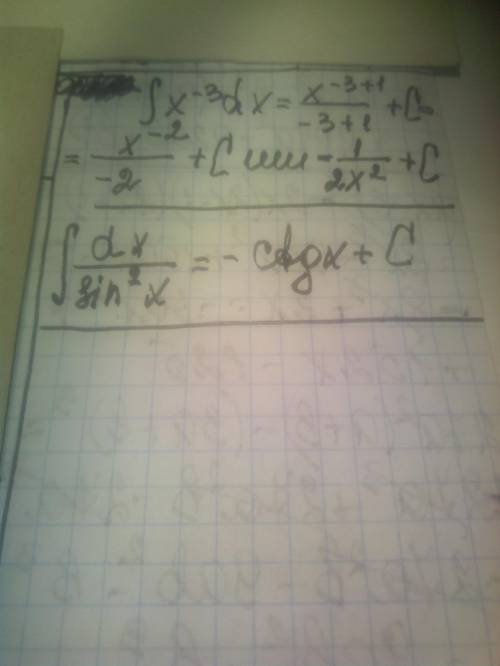 ∫ x⁻³dx = x⁻³⁺¹/-3+1 + C =
= x⁻²/-2 + C или - 1/2x² + C
∫ dx/sin²x = - ctgx + C